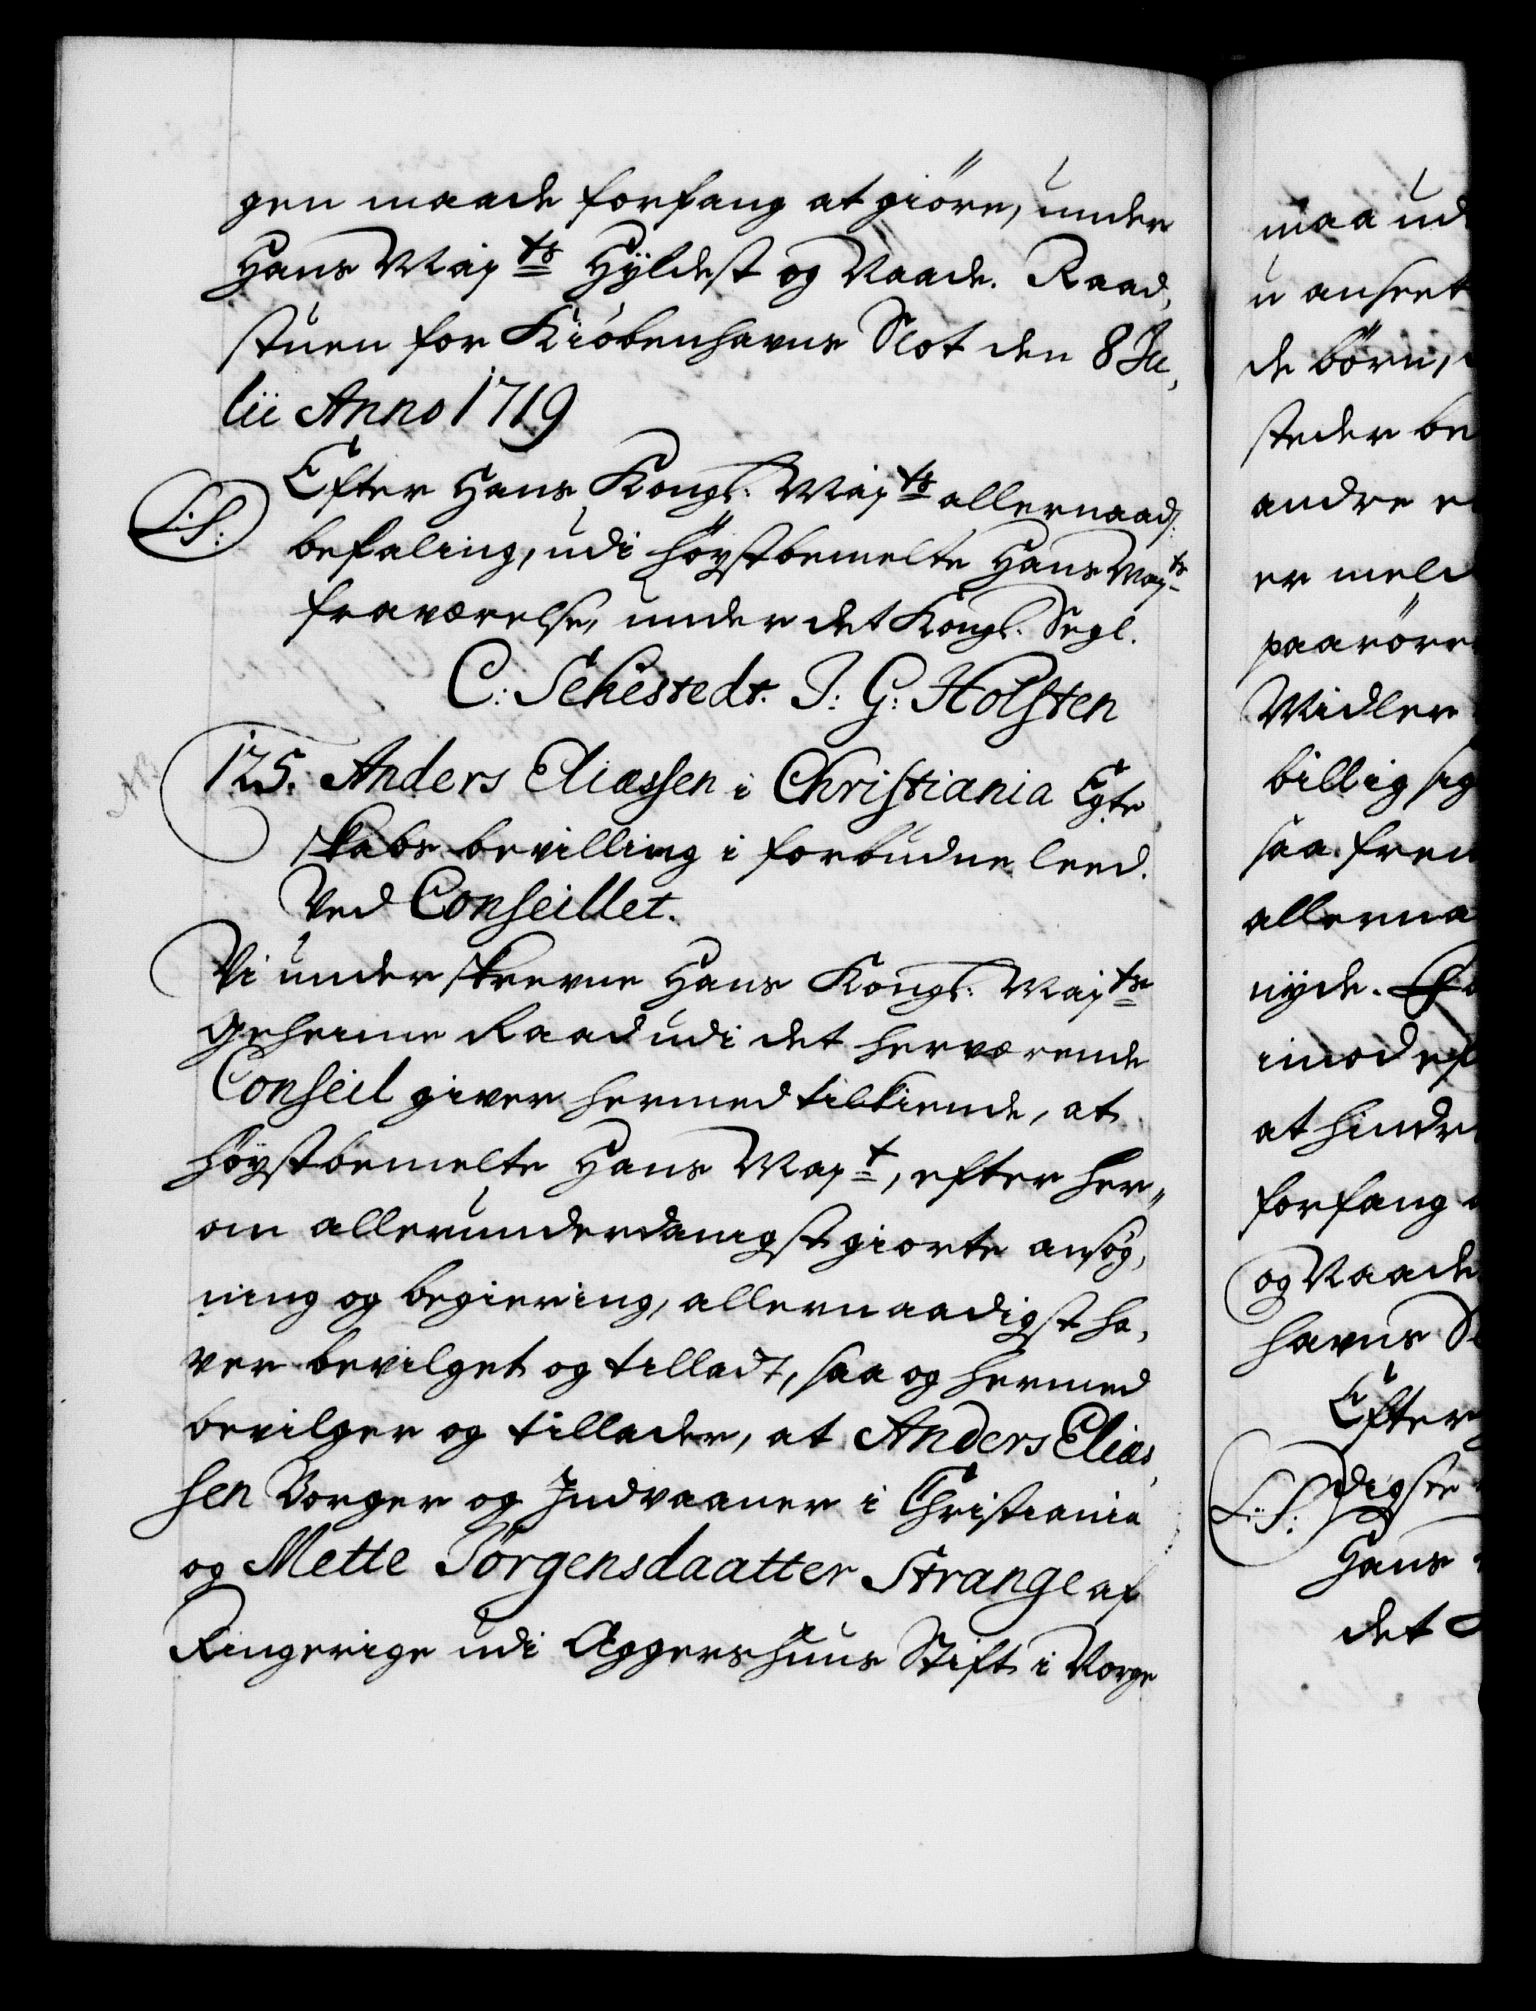 gen maade forfang at giöre, under
Hans Maj<sup>ts</sup> Hyldest og Naade. Raad,
stuen for Kiöbenhavns Slot den 8 Ju,
lii Anno 1719
L.S: Efter Hans Kongl: Maj<sup>ts</sup> allernaad:
befaling, udi höystbemelte Hans Maj<sup>ts</sup>
fraværelse, under det Kongl: Segl.
C: Sehestedt. J: G: Holsten
NB
125. Anders Eliassen i Christiania Egte
skabs bevilling i forbudne leed.
Ved Conseillet.
Vi underskrevne Hans Kongl: Maj<sup>ts</sup>
Geheime Raad udi det herværende
Conseil giver hermed tilkiende, at
höystbemelte Hans Maj<sup>t</sup>, efter her„
om allerunderdanigst giorte ansög,
ning og begiering, allernaadigst ha,
ver bevilget og tilladt, saa og hermed
bevilger og tillader, at Anders Elias,
sen Borger og Indvaaner i Christiania
og Mette Jörgensdaatter Strange af
Ringerige udi Aggershuus Stift i Norge
maa ud
u anseet
de börn,
steder be
andre
er meld
paaröre
Midler
billig sig
saa frem
allerna
nyde.
imod
at hindre
forfang
og Naade
havns
Efter
L.S: digste
Hans
det